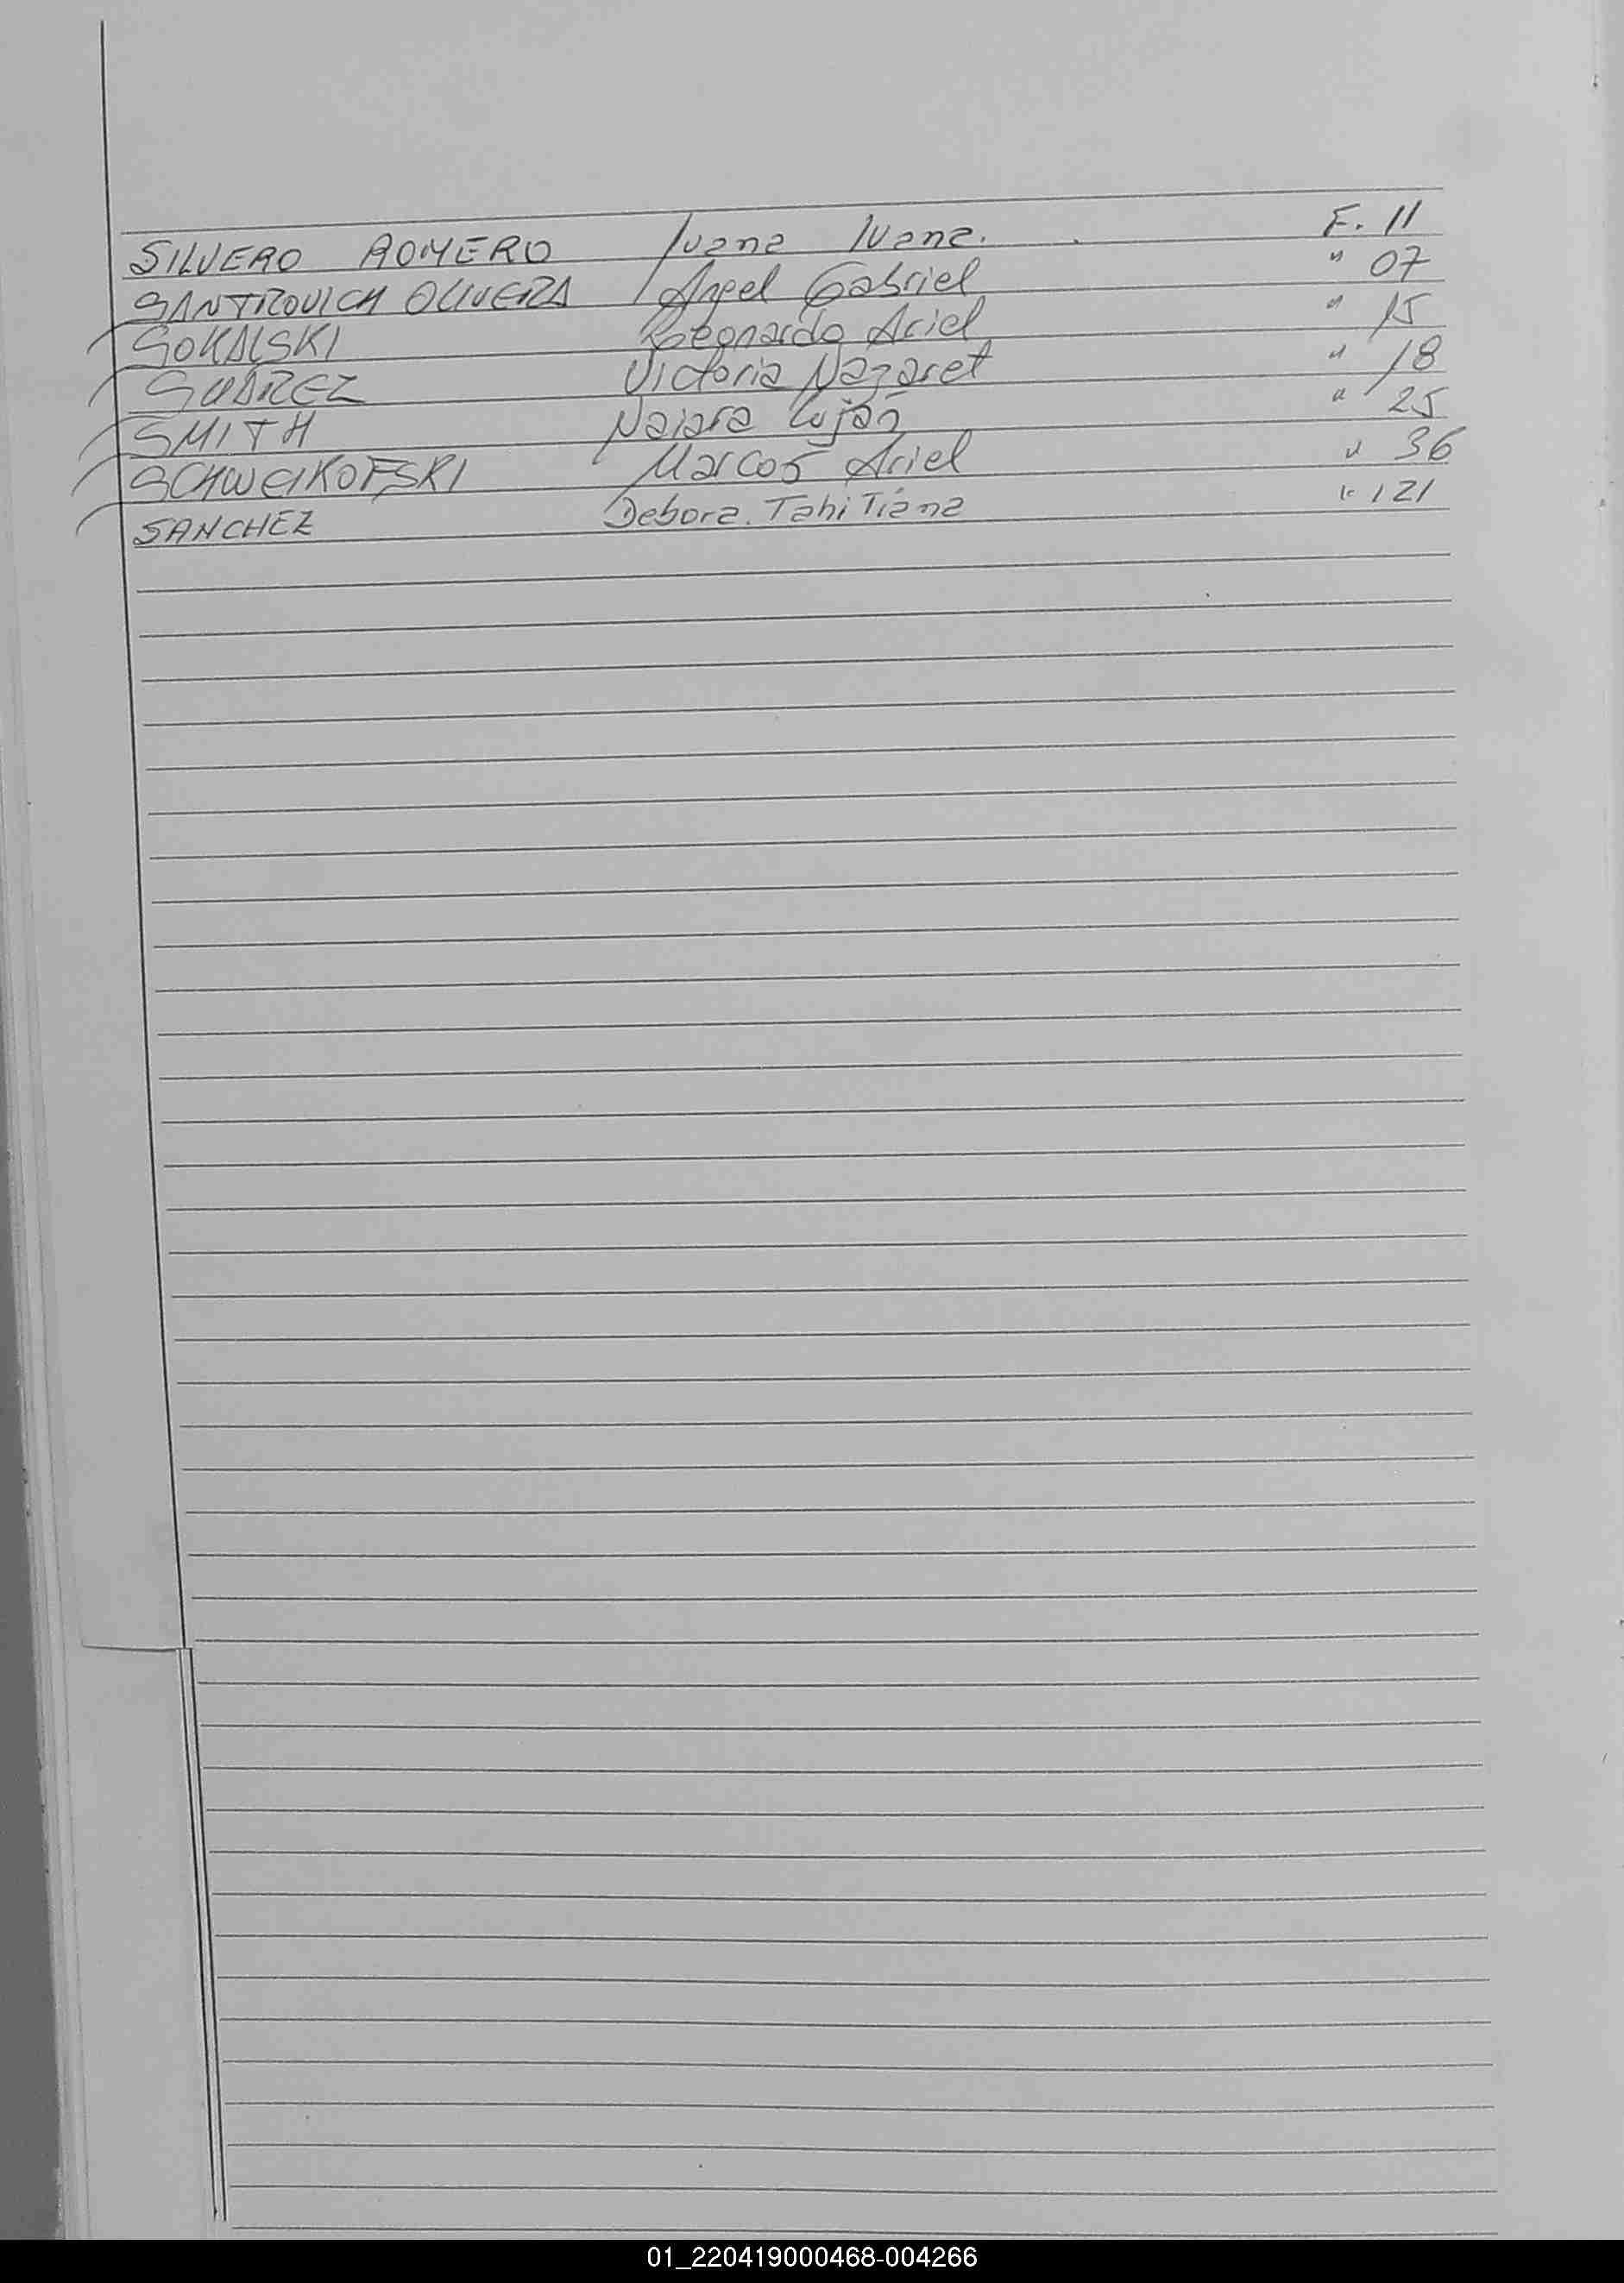 SILVERO ROMERO Ivana Ivana. F. 11
SANTROVICH OLIVEIRA Angel Gabriel " 07
SOKALSKI Leonardo Ariel " 15
SUAREZ Victoria Nazaret " 18
SMITH Naiara Luján " 25
SCHWEIKOFSKI Marcos Ariel " 36
SANCHEZ Debora. Tahi Tiana " 121
01_220419000468-004266